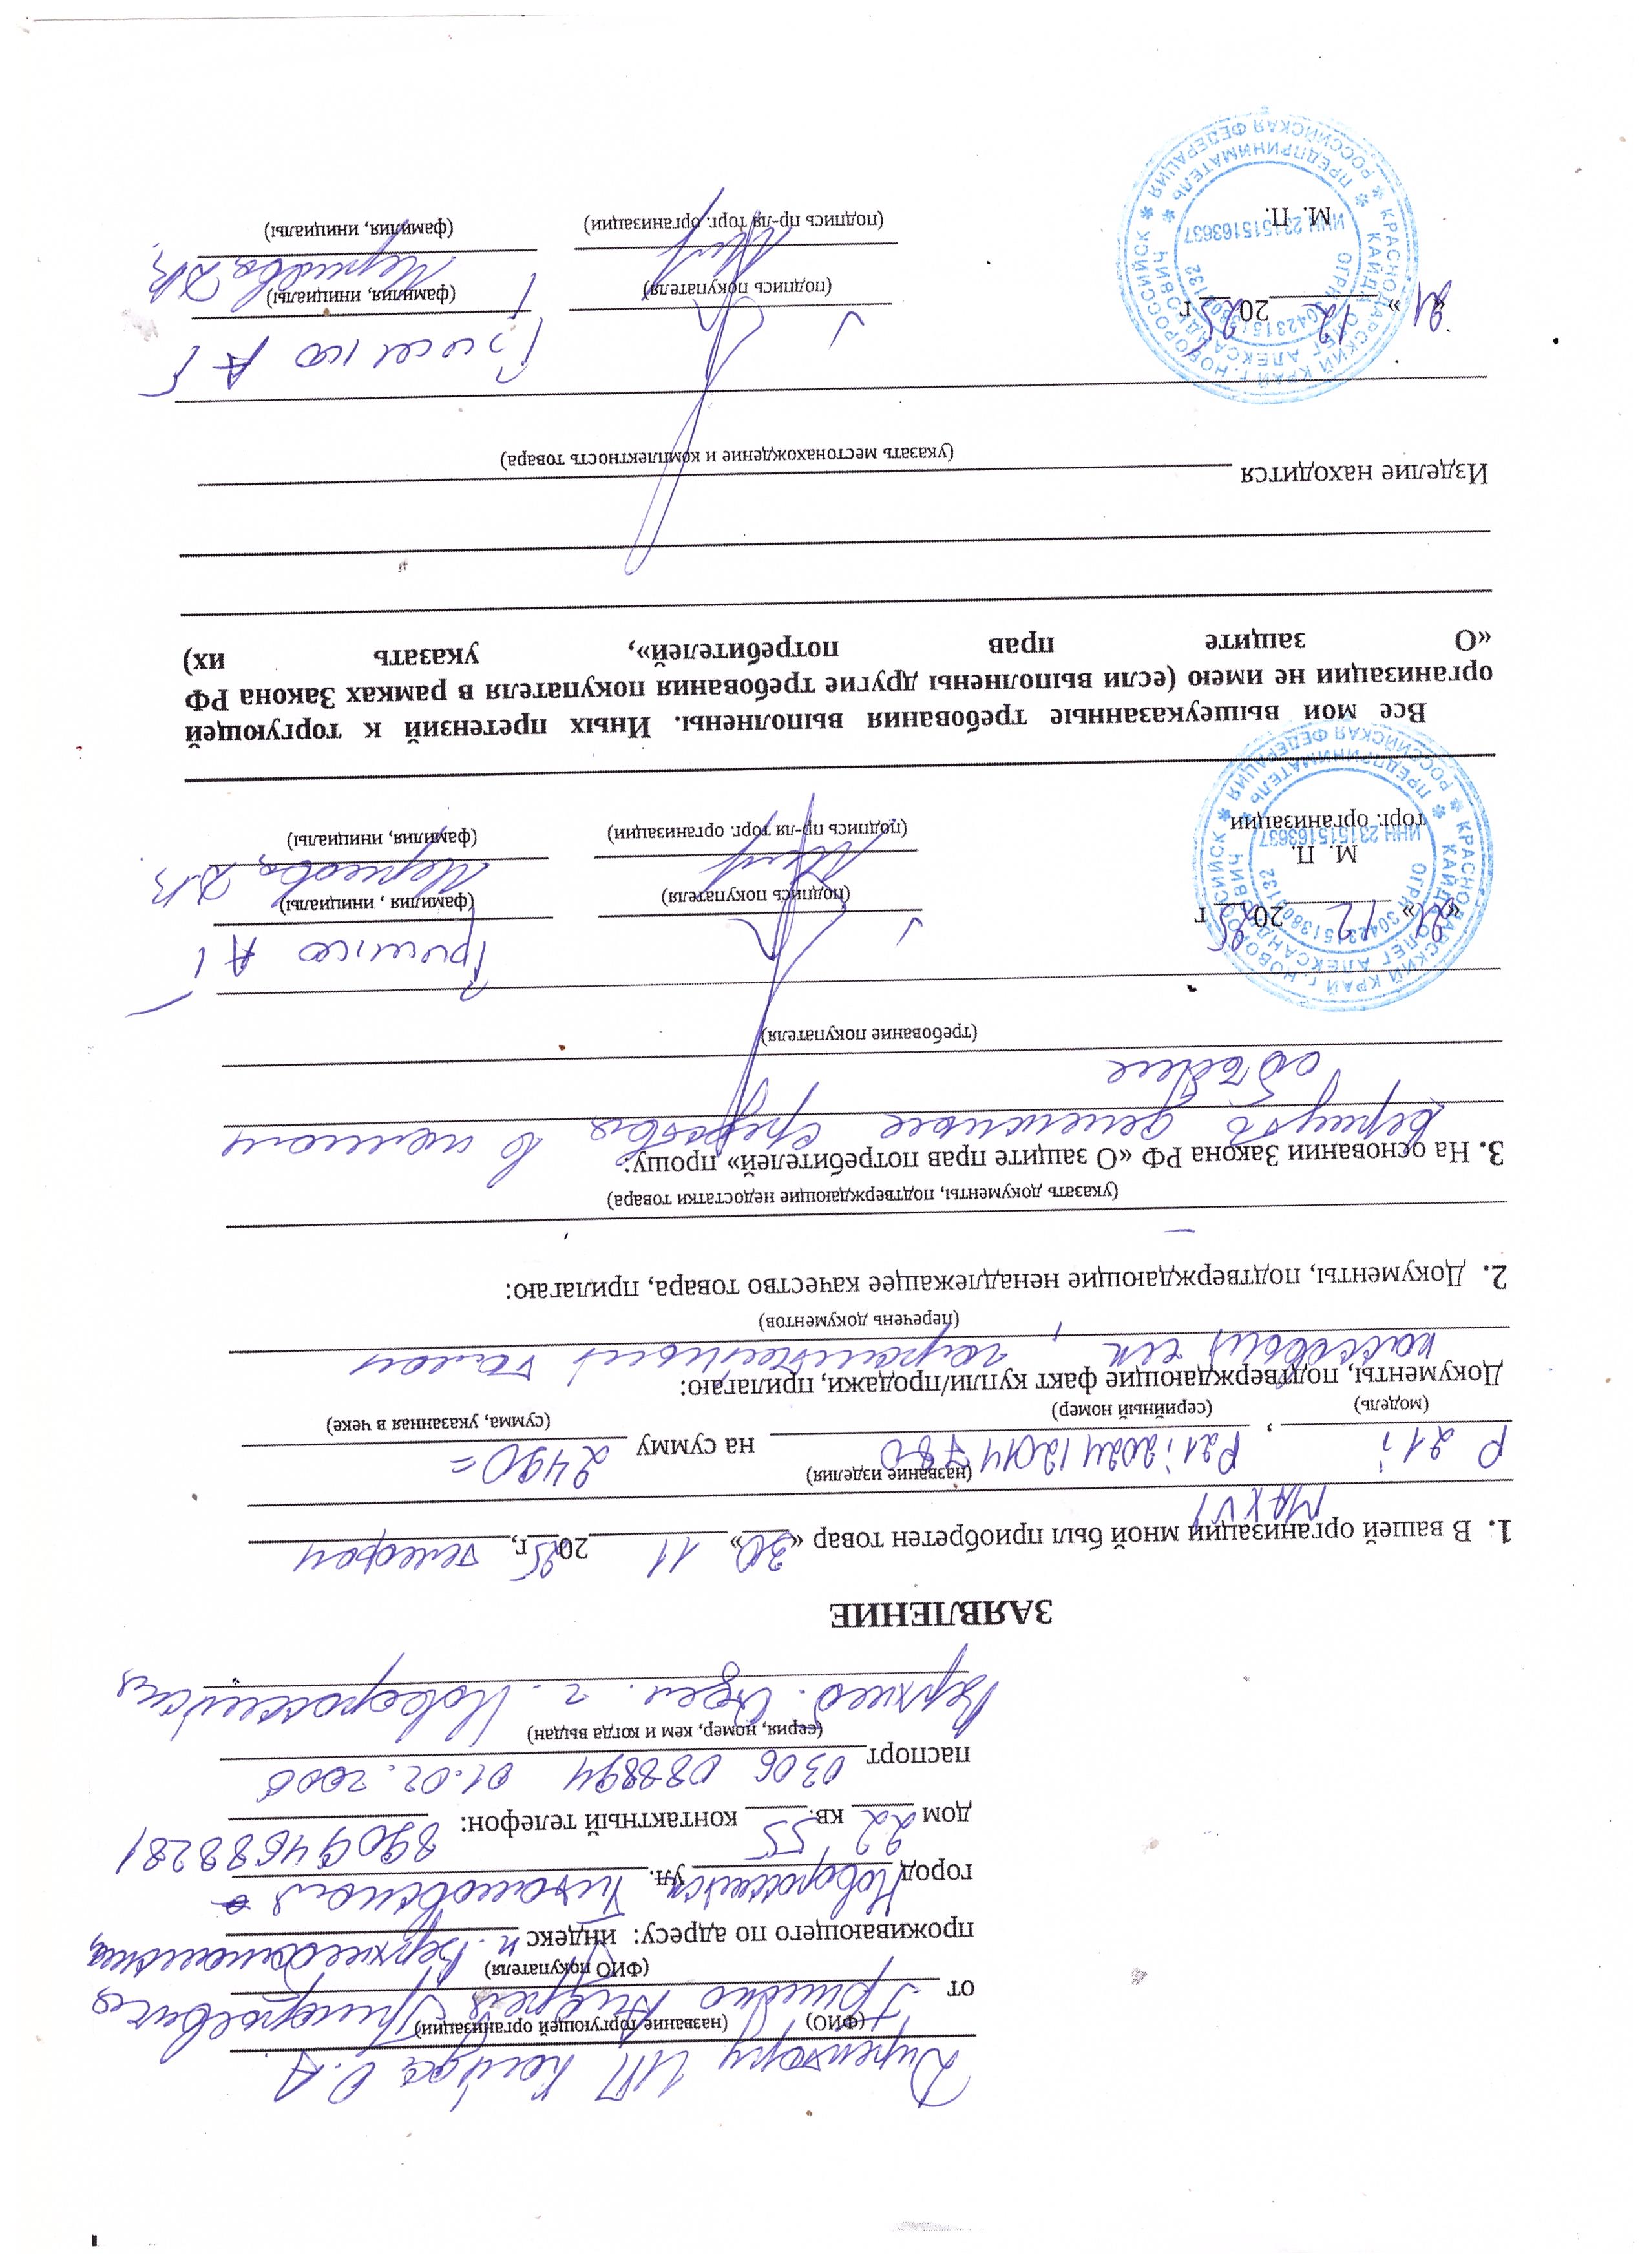 Директору ИП Кайда О.А
(ФИО) (название торгующей организации)
от Гришко Андрея Григорьевича
(ФИО покупателя)
проживающего по адресу: индекс п. Верхнебаканский
город Новороссийск ул.
дом 22 кв. 55 контактный телефон: 89094688281
паспорт 0306 088894 01.02.2006
(серия, номер, кем и когда выдан)
Верхнеб. отдел. г. Новороссийска
ЗАЯВЛЕНИЕ
1. В вашей организации мной был приобретен товар «30» 11 2025 г, телефон
MAXVI
(название изделия)
P 21 i , P21i202412014780 на сумму 2490=
(модель) (серийный номер) (сумма, указанная в чеке)
Документы, подтверждающие факт купли/продажи, прилагаю:
кассовый чек, гарантийный талон
(перечень документов)
2. Документы, подтверждающие ненадлежащее качество товара, прилагаю:
–
(указать документы, подтверждающие недостатки товара)
3. На основании Закона РФ «О защите прав потребителей» прошу:
вернуть денежные средства в полном
объёме
(требование покупателя)
Гришко А Г
«21» 12 2025 г (подпись покупателя) (фамилия , инициалы)
М. П.
торг. организации (подпись пр-ля торг. организации) (фамилия, инициалы)
КРАСНОДАРСКИЙ КРАЙ Г. НОВОРОССИЙСК * РОССИЙСКАЯ ФЕДЕРАЦИЯ *
КАЙДА ОЛЕГ АЛЕКСАНДРОВИЧ * ПРЕДПРИНИМАТЕЛЬ *
ИНН 231515163637
Все мои вышеуказанные требования выполнены. Иных претензий к торгующей
организации не имею (если выполнены другие требования покупателя в рамках Закона РФ
«О защите прав потребителей», указать их)
Изделие находится
(указать местонахождение и комплектность товара)
Гришко А Г
«21» 12 2025 г (подпись покупателя) (фамилия, инициалы)
М. П.
(подпись пр-ля торг. организации) (фамилия, инициалы)
КРАСНОДАРСКИЙ КРАЙ Г. НОВОРОССИЙСК * РОССИЙСКАЯ ФЕДЕРАЦИЯ *
КАЙДА ОЛЕГ АЛЕКСАНДРОВИЧ * ПРЕДПРИНИМАТЕЛЬ *
ИНН 231515163637